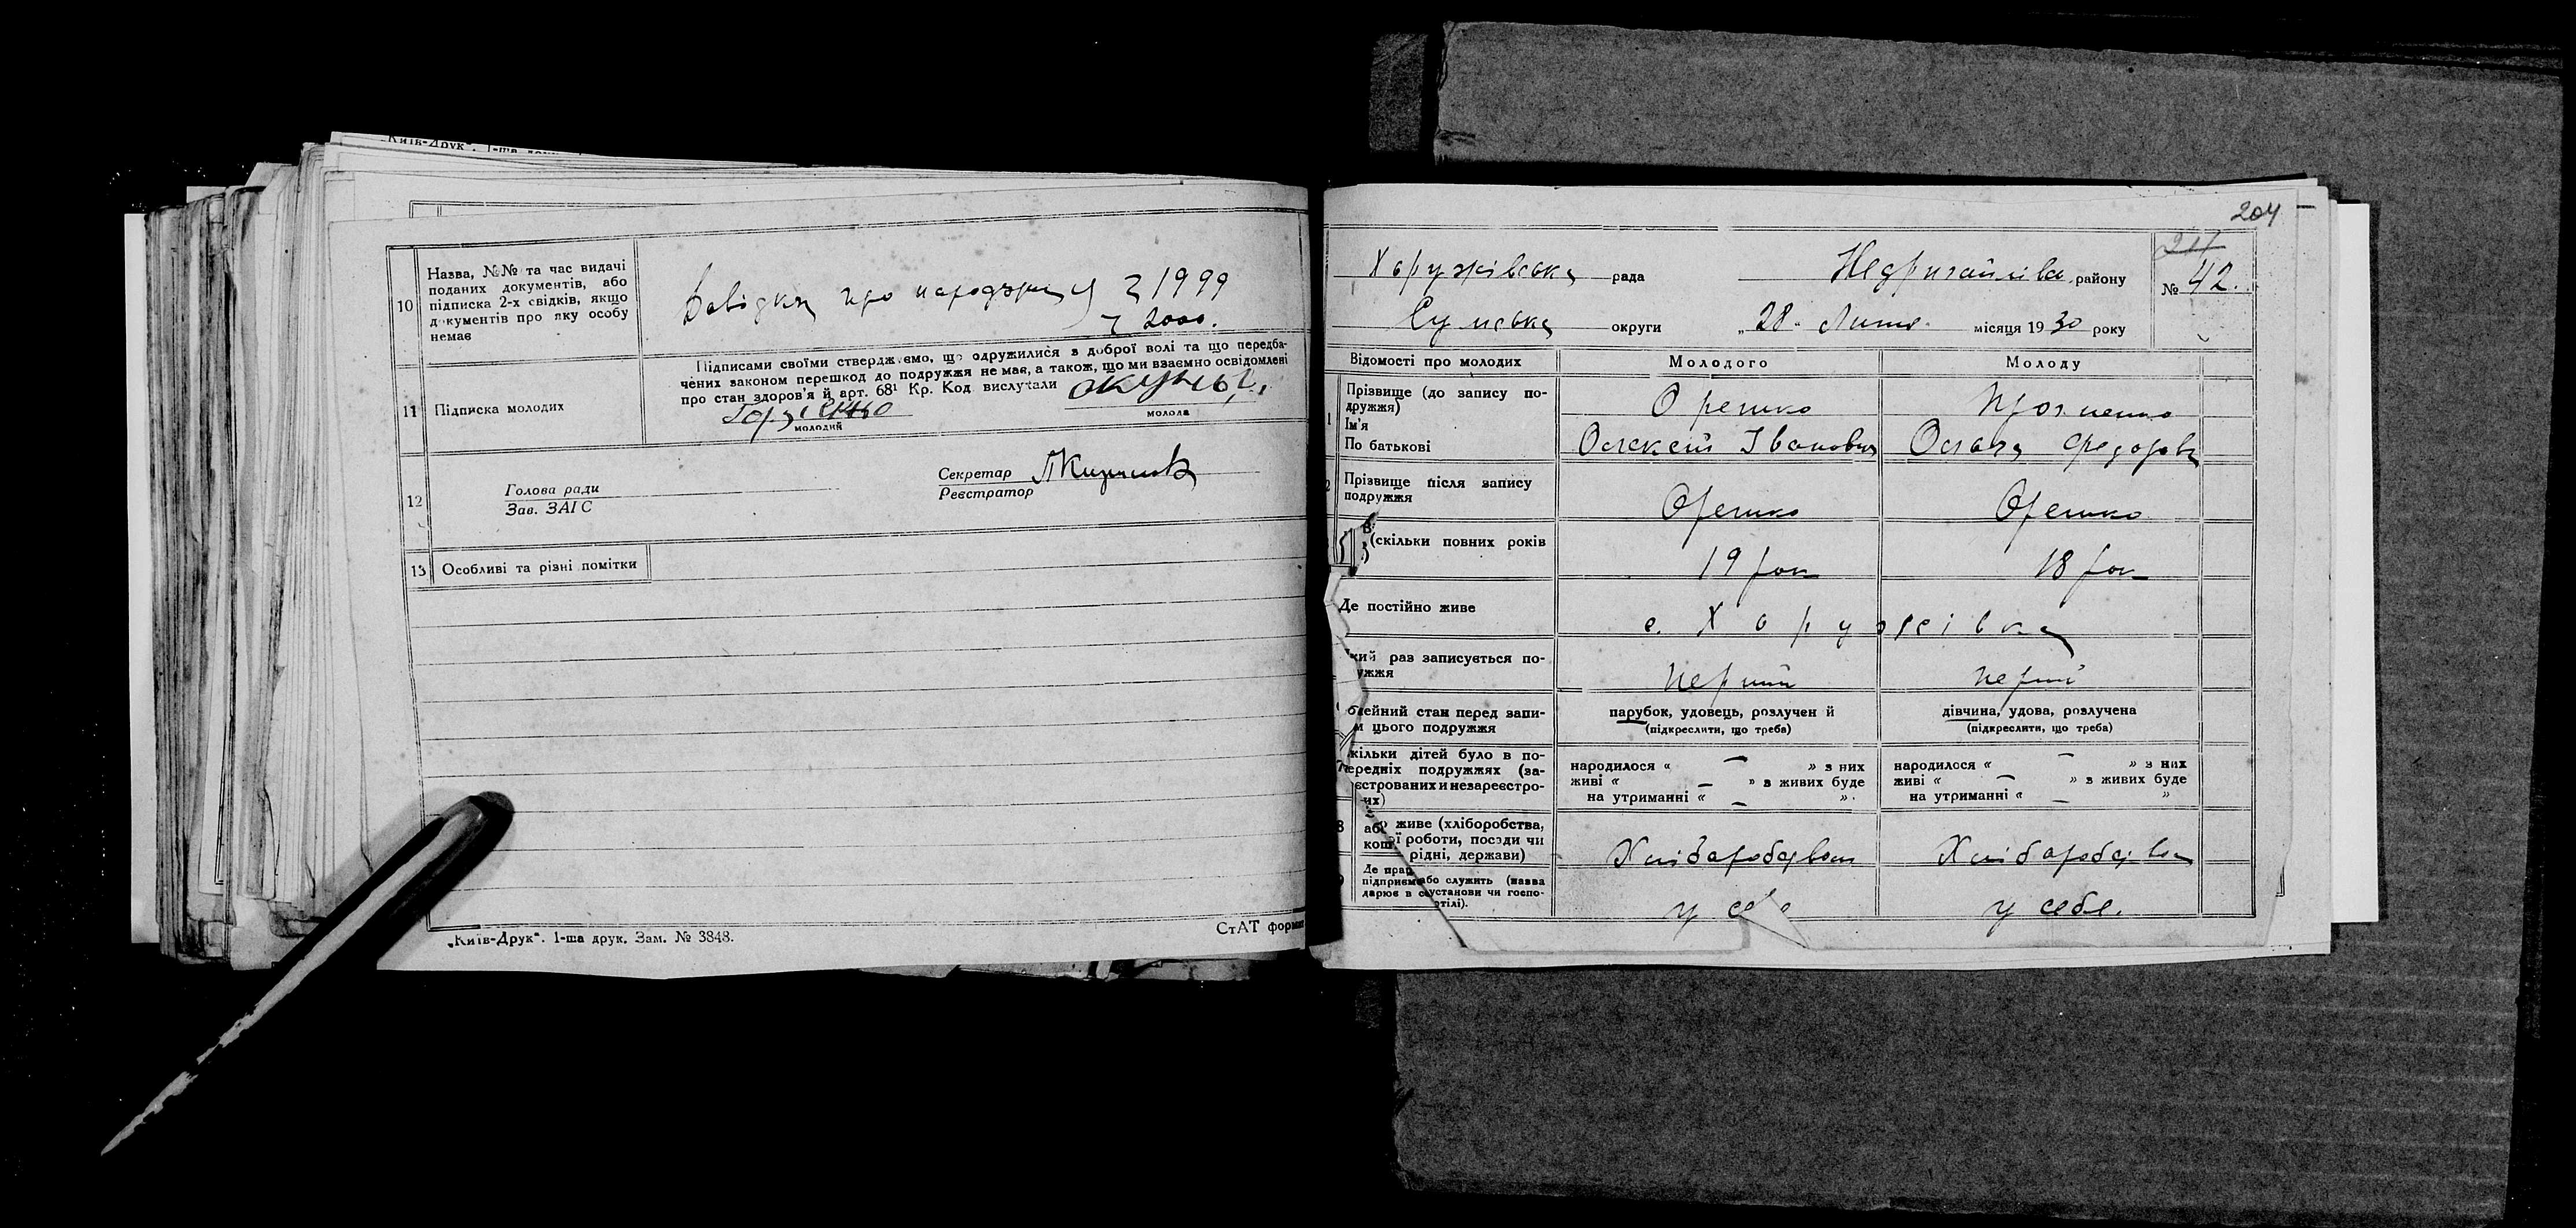 „Київ-Друк“. 1-ша друк.
10
Назва, №№ та час видачі
поданих документів, або
підписка 2-х свідків, якщо
документів про яку особу
немає
Довідки про народження 1999
2000.
11
Підписка молодих
Підписами своїми стверджуємо, що одружилися з доброї волі та що передба-
чених законом перешкод до подружжя не має, а також, що ми взаємно освідомлені
про стан здоров'я й арт. 68¹ Кр. Код вислухали
молодий
молода
12
Голова ради
Зав. ЗАГС
Секретар
Реєстратор
13
Особливі та різні помітки
„Київ-Друк“. 1-ша друк. Зам. № 3848.
СтАТ формат
204
Хоружівська рада Недригайлівс. району
№ 42.
Сумська округи „28“ Лютого місяця 1930 року
Відомості про молодих Молодого Молоду
1
Прізвище (до запису по-
дружжя)
Ім'я
По батькові
Орешко
Олексій Іванович Федоровн
Прізвище після запису
подружжя
Орешко Орешко
В (скільки повних років
19 рок 18 рок
Де постійно живе
с. Хоружівка
кий раз записується по-
ужжя
перший перший
ейний стан перед запи-
м цього подружжя
парубок, удовець, розлучен й
(підкреслити, що треба)
дівчина, удова, розлучена
(підкреслити, що треба)
7
кільки дітей було в по-
ередніх подружжях (за-
єстрованих и незареєстро-
их)
народилося « — » з них
живі « — » з живих буде
на утриманні « — »
народилося « — » з них
живі « — » з живих буде
на утриманні « — »
8
живе (хліборобства,
ї роботи, посади чи
рідні, держави)
Хліборобством Хліборобством
Де прац
або служить (назва
установи чи госпо-
ртілі).
у себе у себе.